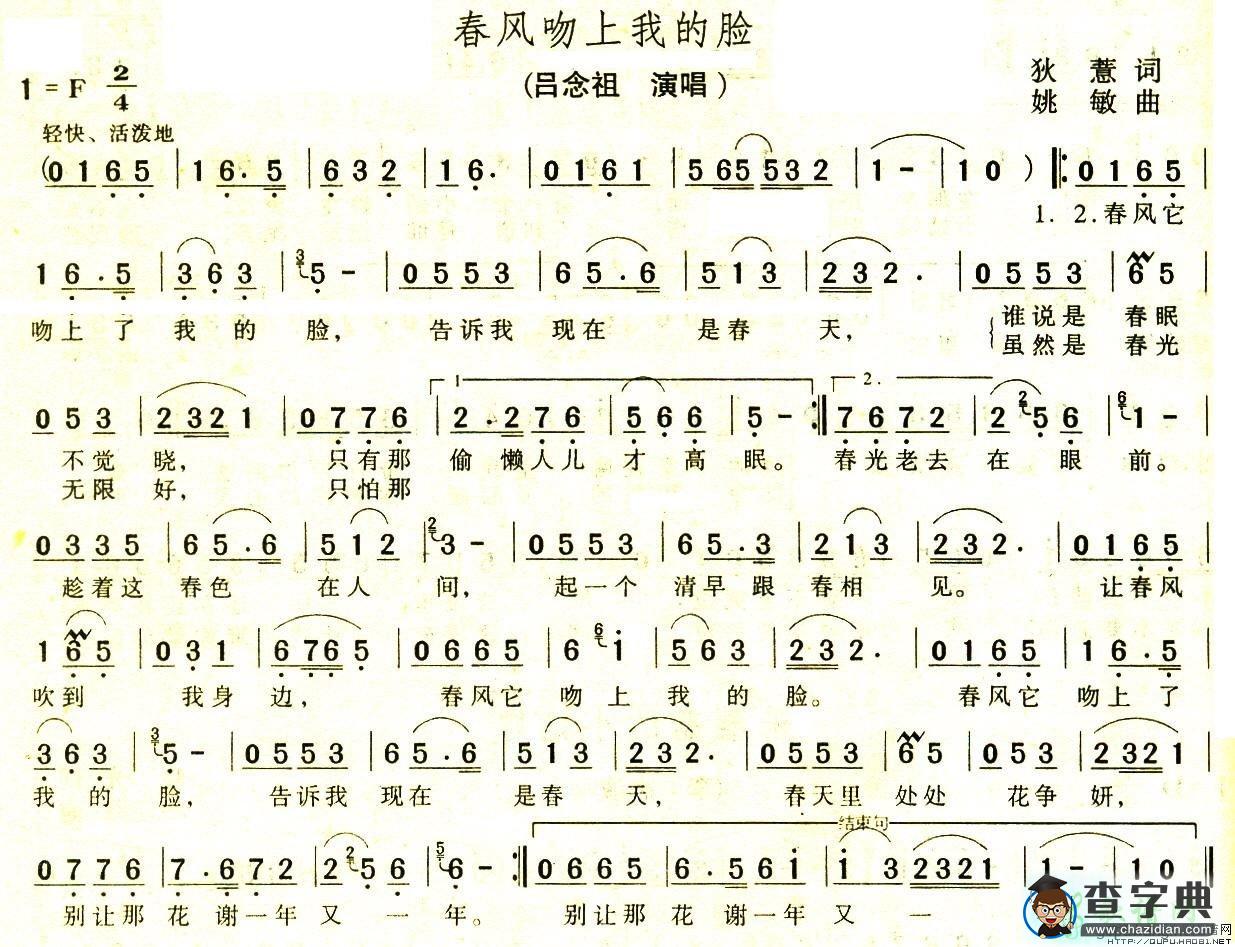 春风吻上我的脸
(吕念祖 演唱)
1=F 2/4
狄薏词
姚敏曲
轻快、活泼地
(0165 | 16.5 | 632 | 16. | 0161 | 565532 | 1- | 10 ) ‖: 0165 |
1. 2.春风它
16.5 | 363 | 3 5- | 0553 | 65.6 | 513 | 232. | 0553 | 65 |
吻上了 我的 脸, 告诉我 现在 是春 天, 谁说是 春眠
虽然是 春光
053 | 2321 | 0776 | 1 2.276 | 566 | 5- :‖ 2. 7672 | 2 2 56 | 6 1- |
不觉 晓, 只有那 偷懒人儿 才高 眠。 春光老去 在眼 前。
无限 好, 只怕那
0335 | 65.6 | 512 | 2 3- | 0553 | 65.3 | 213 | 232. | 0165 |
趁着这 春色 在人 间, 起一个 清早跟 春相 见。 让春风
165 | 031 | 6765 | 0665 | 6 6 1 | 563 | 232. | 0165 | 16.5 |
吹到 我身 边, 春风它 吻上 我的 脸。 春风它 吻上了
363 | 3 5- | 0553 | 65.6 | 513 | 232. | 0553 | 65 | 053 | 2321 |
我的 脸, 告诉我 现在 是春 天, 春天里 处处 花争 妍,
结束句
0776 | 7.672 | 2 2 56 | 5 6- :‖ 0665 | 6.561 | 1 3 | 2321 | 1- | 10 ‖
别让那 花谢一年 又一 年。 别让那 花谢一年 又 一
查字典
www.chazidian.com
HTTP://QUPU.HAOBI.NET